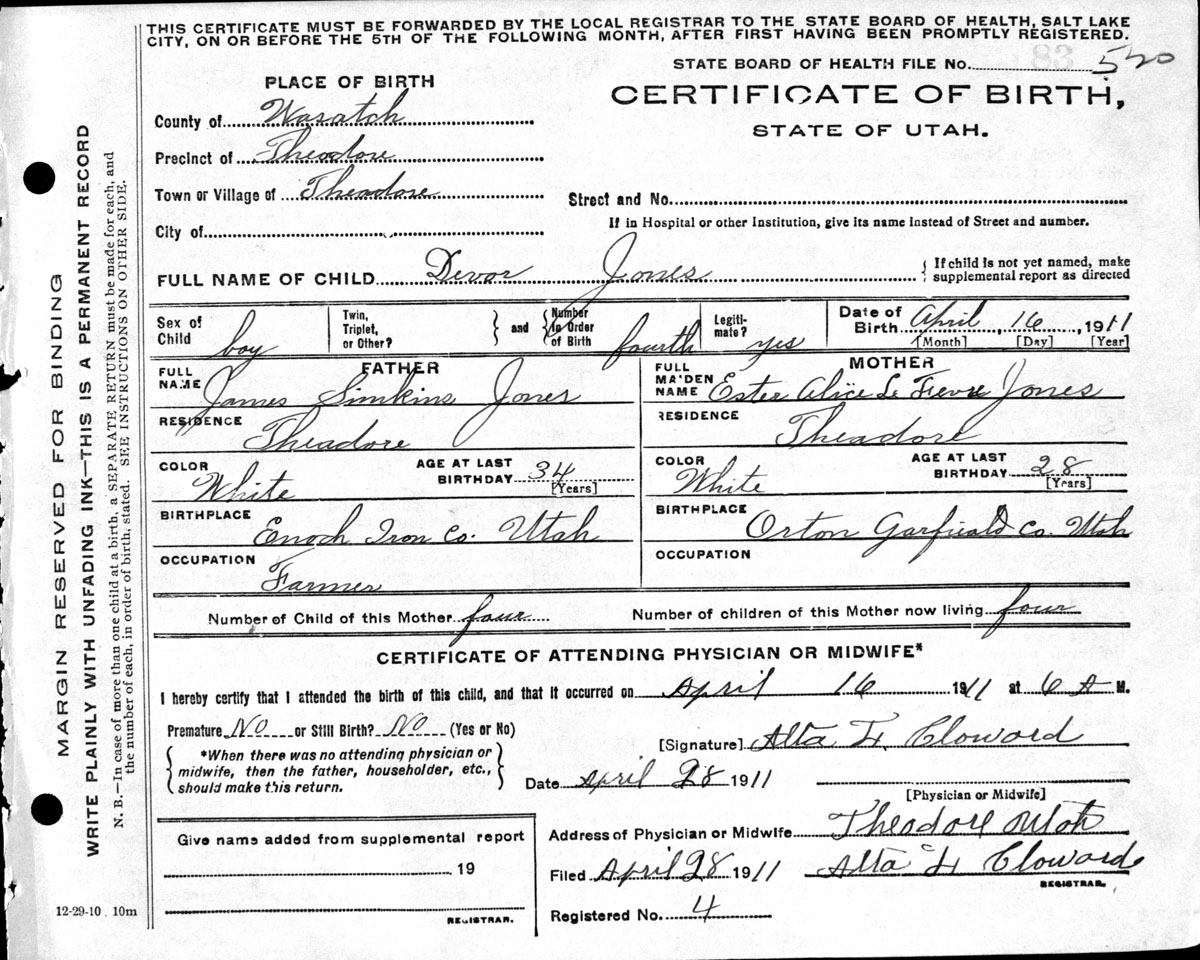 THIS CERTIFICATE MUST BE FORWARDED BY THE LOCAL REGISTRAR TO THE STATE BOARD OF HEALTH, SALT LAKE
CITY, ON OR BEFORE THE 5TH OF THE FOLLOWING MONTH, AFTER FIRST HAVING BEEN PROMPTLY REGISTERED.
STATE BOARD OF HEALTH FILE No. 520
PLACE OF BIRTH
CERTIFICATE OF BIRTH,
STATE OF UTAH.
County of Wasatch
Precinct of Theodore
Town or Village of Theodore
Street and No.
City of
If in Hospital or other Institution, give its name instead of Street and number.
FULL NAME OF CHILD Devor Jones
{ If child is not yet named, make
supplemental report as directed
Sex of Child boy
Twin, Triplet, or Other? } and { Number in Order of Birth fourth
Legiti-mate? yes
Date of Birth April, 16, 1911
[Month] [Day] [Year]
FATHER
FULL NAME James Simkins Jones
MOTHER
FULL MAIDEN NAME Ester Alice Le Fevre Jones
RESIDENCE Theadore
RESIDENCE Theadore
COLOR White AGE AT LAST BIRTHDAY 34 [Years]
COLOR White AGE AT LAST BIRTHDAY 28 [Years]
BIRTHPLACE Enoch Iron Co. Utah
BIRTHPLACE Orton Garfield Co. Utah
OCCUPATION Farmer
OCCUPATION
Number of Child of this Mother four Number of children of this Mother now living four
CERTIFICATE OF ATTENDING PHYSICIAN OR MIDWIFE*
I hereby certify that I attended the birth of this child, and that it occurred on April 16 1911 at 6 A M.
Premature No or Still Birth? No (Yes or No)
{ *When there was no attending physician or
midwife, then the father, householder, etc.,
should make this return. }
[Signature] Alta L. Cloward
Date April 28 1911
[Physician or Midwife]
Give name added from supplemental report
19
REGISTRAR.
Address of Physician or Midwife Theodore Utah
Filed April 28 1911 Alta L. Cloward
REGISTRAR.
Registered No. 4
12-29-10. 10m
MARGIN RESERVED FOR BINDING
WRITE PLAINLY WITH UNFADING INK—THIS IS A PERMANENT RECORD
N. B.—In case of more than one child at a birth, a SEPARATE RETURN must be made for each, and
the number of each, in order of birth, stated. SEE INSTRUCTIONS ON OTHER SIDE.